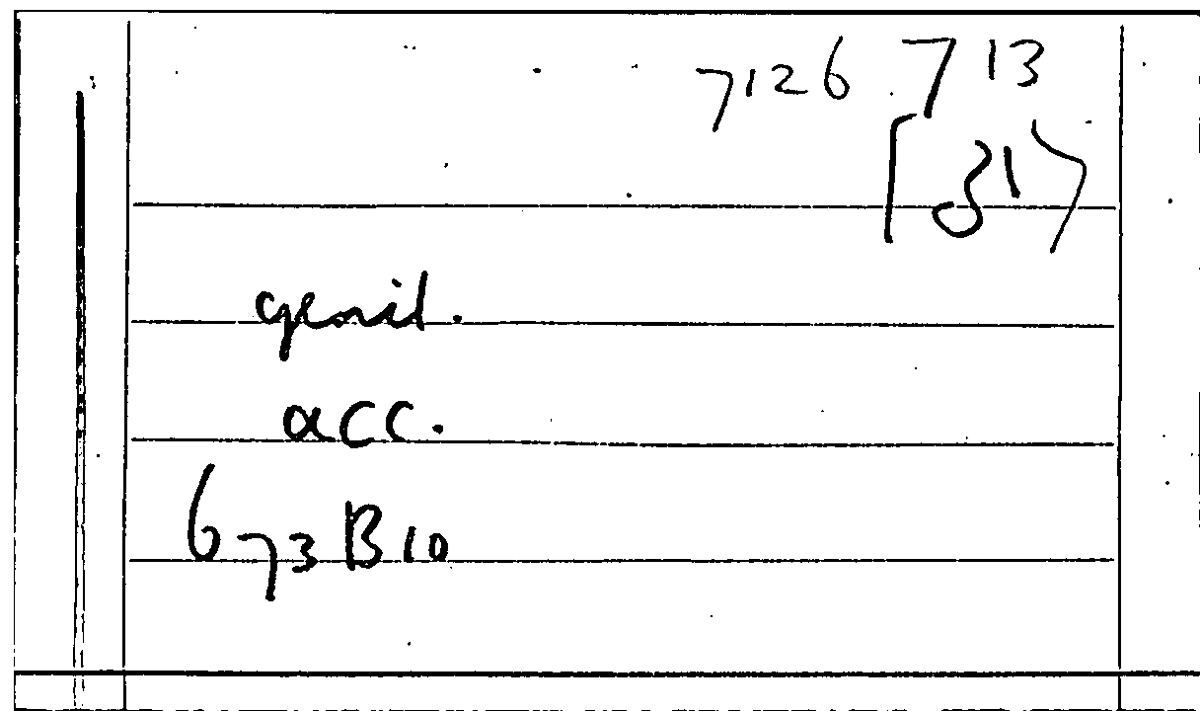 7126 713
[31]
genit.
acc.
673 B 10